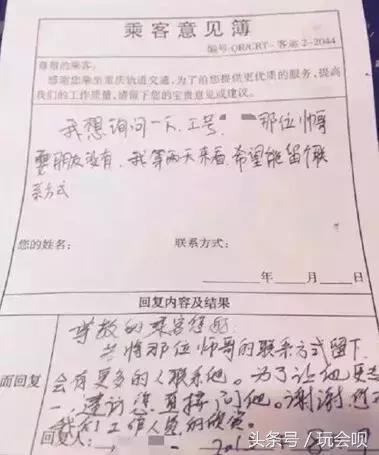 乘客意见簿
编号:QR/CRT-客运 2-2044
尊敬的乘客:
感谢您乘坐重庆轨道交通,为了给您提供更优质的服务,提高
我们的工作质量,请留下您的宝贵意见或建议。
我想询问一下,工号 那位帅哥
耍朋友没有,我等两天来看,希望能留个联
系方式
您的姓名: 联系方式:
年 月 日
回复内容及结果
尊敬的乘客您好:
若将那位帅哥的联系方式留下
面回复
会有更多的人联系他。为了让他更
一,建议您直接问他。谢谢您
我们工作人员的欣赏
回复人:
头条号 / 玩会呗